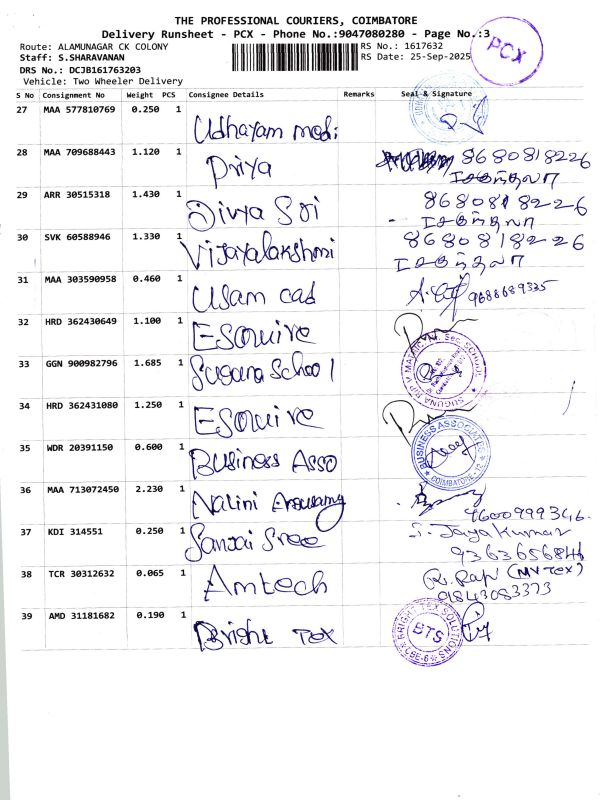 THE PROFESSIONAL COURIERS, COIMBATORE
Delivery Runsheet - PCX - Phone No.:9047080280 - Page No.:3
Route: ALAMUNAGAR CK COLONY
RS No.: 1617632
Staff: S.SHARAVANAN
RS Date: 25-Sep-2025
PCX
DRS No.: DCJB161763203
Vehicle: Two Wheeler Delivery
S No Consignment No Weight PCS Consignee Details Remarks Seal & Signature
27 MAA 577810769 0.250 1 Udhayam medi
28 MAA 709688443 1.120 1 Priya 8680818226
சகுந்தலா
29 ARR 30515318 1.430 1 Divya Sri 8680818226
சகுந்தலா
30 SVK 60588946 1.330 1 Vijayalakshmi 8680818226
சகுந்தலா
31 MAA 303590958 0.460 1 Usam cad 9688689335
32 HRD 362430649 1.100 1 Esquire
33 GGN 900982796 1.685 1 Suguna School
34 HRD 362431080 1.250 1 Esquire
35 WDR 20391150 0.600 1 Business Asso BUSINESS ASSOCIATES COIMBATORE-12
36 MAA 713072450 2.230 1 Nalini 9600999346
37 KDI 314551 0.250 1 Sanjai Sree S. Jaya Kumar
9363656846
38 TCR 30312632 0.065 1 Amtech (MV Tex)
9843083373
39 AMD 31181682 0.190 1 Bright Tex BRIGHT TEX SOLUTIONS BTS CBE-6